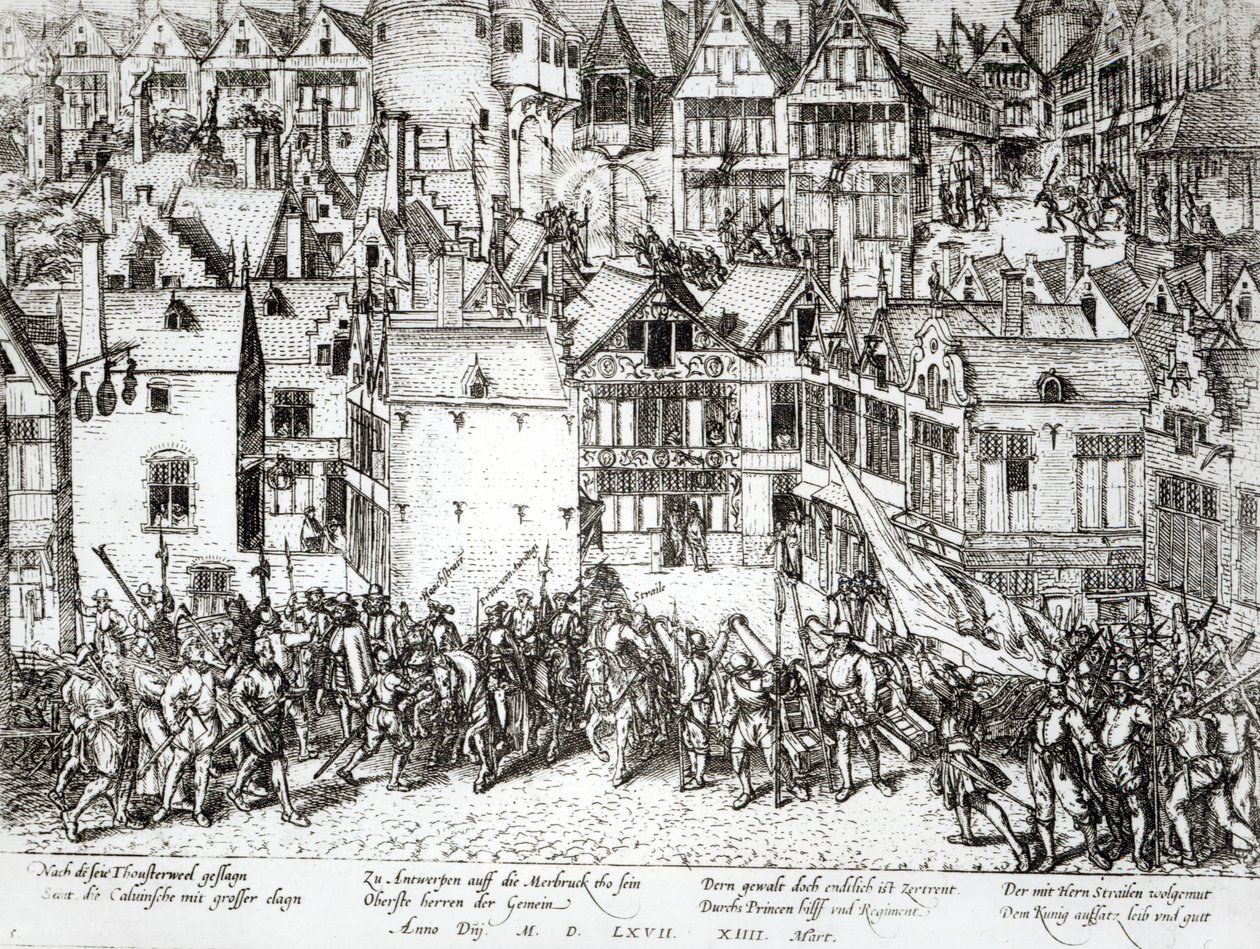 Hoochstraet
Prince van Aurangien
Straile
Nach dē seiē Thousterweel geslagn
Seint die Caluinsche mit grosser clagn
Zu Antwerpen auff die Merbruck tho sein
Oberste herren der Gemein
Dern gewalt doch endtlich ist zertrent.
Durchs Princen hilff vnd Regiment
Der mit Hern Strailen wolgemut
Dem Kunig auffsatz leib vnd gutt
Anno Dñi. M. D. LXVII. XIIII. Mart.
5.